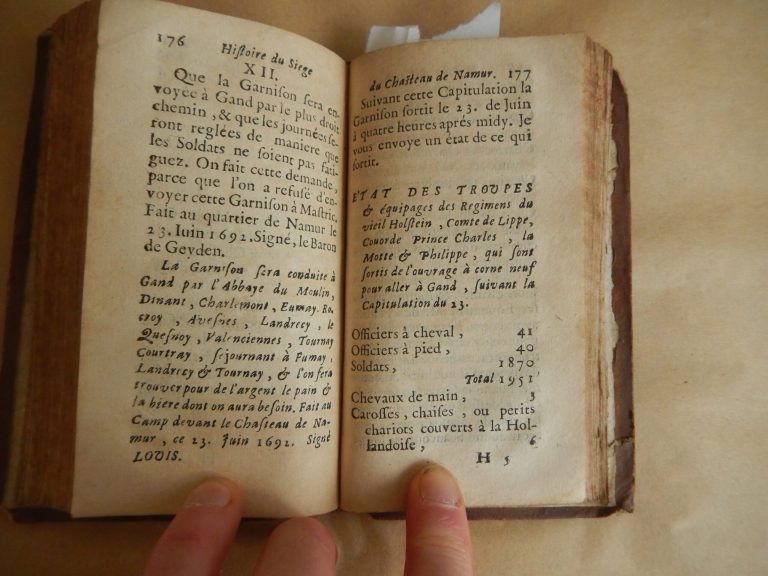 176 Histoire du Siege
XII.
Que la Garnison sera en-
voyée à Gand par le plus droit
chemin, & que les journées se-
ront reglées de maniere que
les Soldats ne soient pas fati-
guez. On fait cette demande,
parce que l'on a refusé d'en-
voyer cette Garnison à Mastric.
Fait au quartier de Namur le
23. Juin 1692. Signé, le Baron
de Geyden.
La Garnison sera conduite à
Gand par l'Abbaye du Moulin,
Dinant, Charlemont, Fumay, Ro-
croy, Avesnes, Landrecy, le
Quesnoy, Valenciennes, Tournay
Courtray, sejournant à Fumay,
Landrecy & Tournay, & l'on fera
trouver pour de l'argent le pain &
la biere dont on aura besoin. Fait au
Camp devant le Chasteau de Na-
mur, ce 23. Juin 1692. Signé
LOUIS.
du Chasteau de Namur. 177
Suivant cette Capitulation la
Garnison sortit le 23. de Juin
à quatre heures aprés midy. Je
vous envoye un état de ce qui
sortit.
ETAT DES TROUPES
& équipages des Regimens du
vieil Holstein, Comte de Lippe,
Couorde Prince Charles, la
Motte & Philippe, qui sont
sortis de l'ouvrage à corne neuf
pour aller à Gand, suivant la
Capitulation du 23.
Officiers à cheval, 41
Officiers à pied, 40
Soldats, 1870
Total 1951
Chevaux de main, 3
Carosses, chaises, ou petits
chariots couverts à la Hol-
landoise, 6
H 5